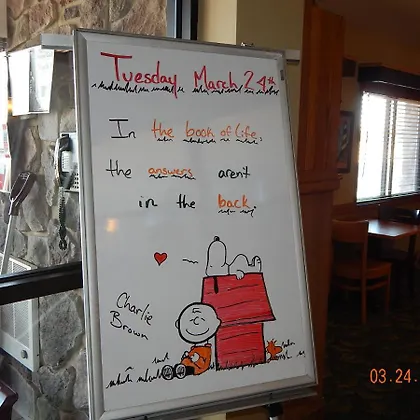 Tuesday March 24th
In the book of life,
the answers aren't
in the back.
Charlie
Brown
03.24.